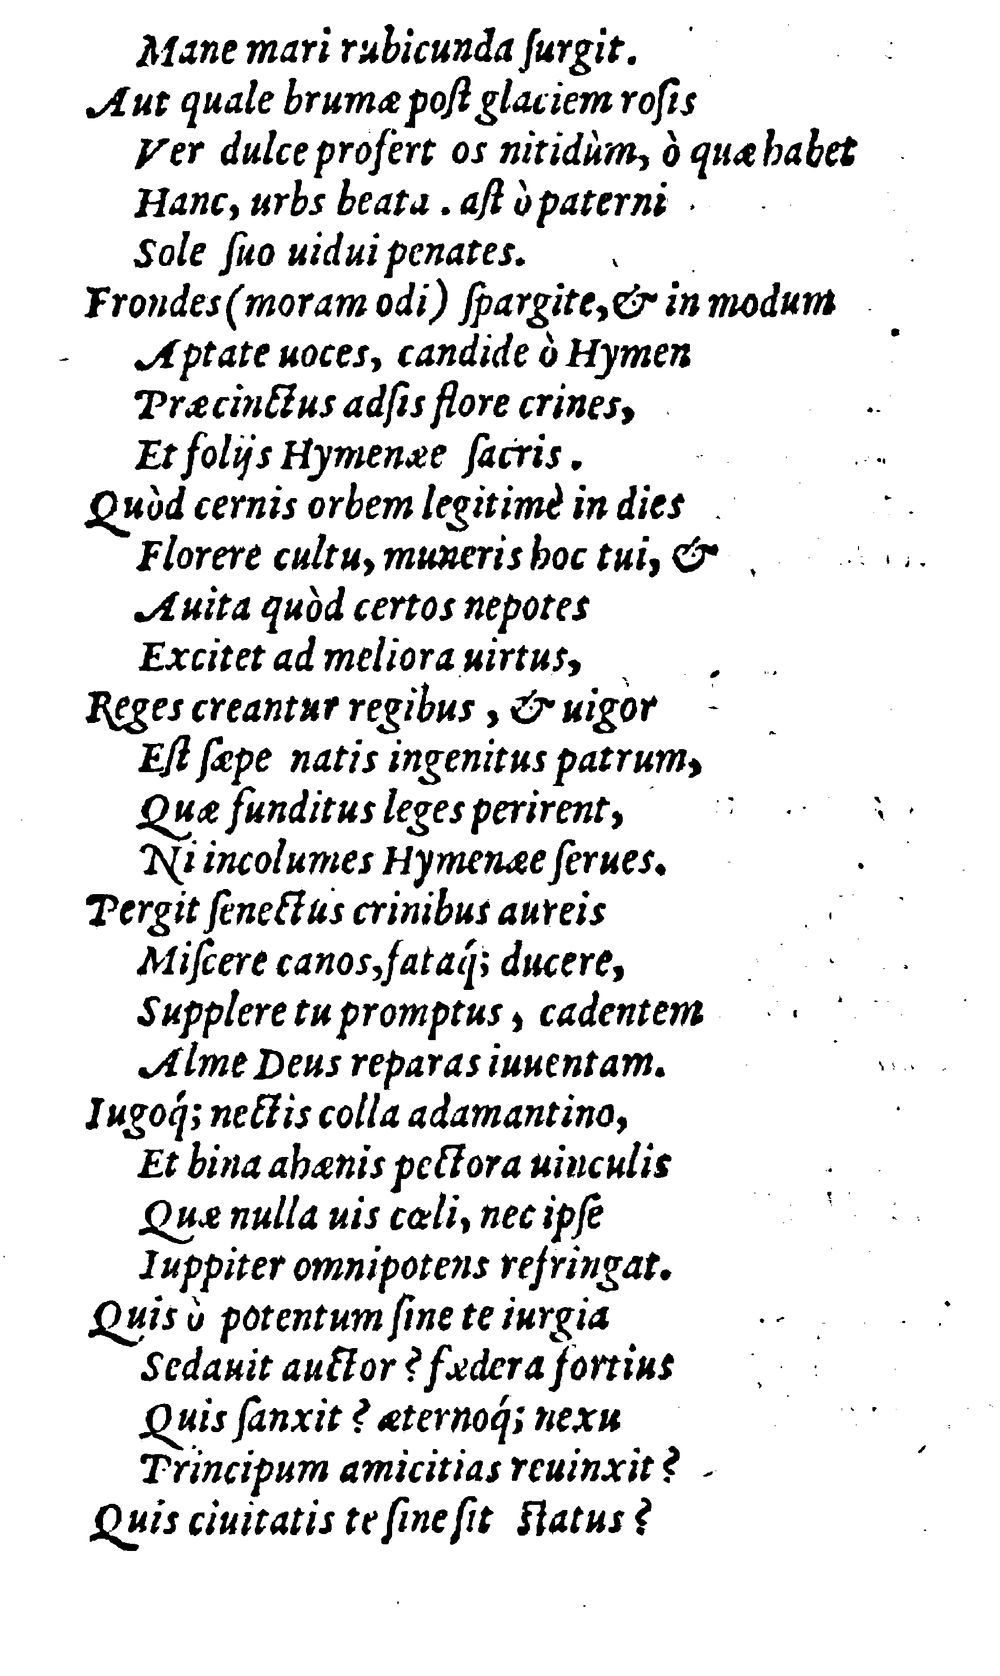 Mane mari rubicunda ſurgit.
Aut quale brumæ poſt glaciem roſis
Ver dulce profert os nitidùm, ò quæ habet
Hanc, urbs beata . aſt ò paterni
Sole ſuo uidui penates.
Frondes (moram odi) ſpargite, & in modum
Aptate uoces, candide ò Hymen
Præcinctus adſis flore crines,
Et folijs Hymenæe ſacris .
Quòd cernis orbem legitimè in dies
Florere cultu, muneris hoc tui, &
Auita quòd certos nepotes
Excitet ad meliora uirtus,
Reges creantur regibus , & uigor
Eſt ſæpe natis ingenitus patrum,
Quæ funditus leges perirent,
Ni incolumes Hymenæe ſerues.
Pergit ſenectus crinibus aureis
Miſcere canos, fataq́; ducere,
Supplere tu promptus , cadentem
Alme Deus reparas iuuentam.
Iugoq́; nectis colla adamantino,
Et bina ahænis pectora uinculis
Quæ nulla uis cœli, nec ipſe
Iuppiter omnipotens refringat.
Quis ò potentum ſine te iurgia
Sedauit auctor ? fædera fortius
Quis ſanxit ? æternoq́; nexu
Principum amicitias reuinxit ?
Quis ciuitatis te ſine ſit ſtatus ?